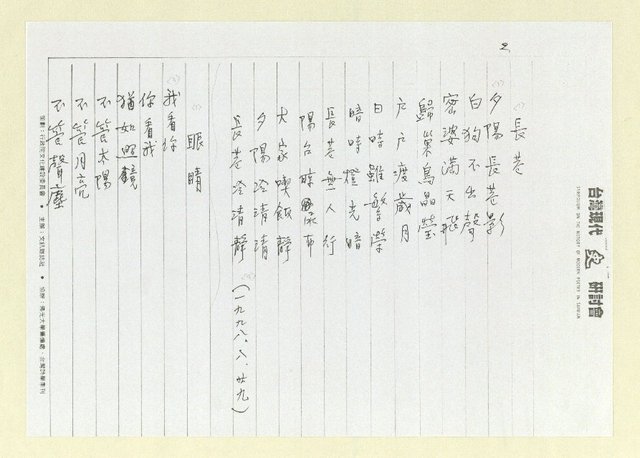 2
台灣現代史研討會
SYMPOSIUM ON THE HISTORY OF MODERN POETRY IN TAIWAN
長巷
夕陽長巷影
白狗不出聲
密婆滿天飛
歸巢鳥晶瑩
戶戶渡歲月
日時雖繁榮
暗時燈光暗
長巷無人行
陽台晾衫
大家喫飯靜
夕陽冷清清
長巷冷清靜
(一九九八.八.廿九)
眼睛
我看你
你看我
猶如照鏡
不管太陽
不管月亮
不管聲塵
策劃：行政院文化建設委員會 ◆ 主辦：文訊雜誌社 ◆ 協辦：台灣詩學季刊